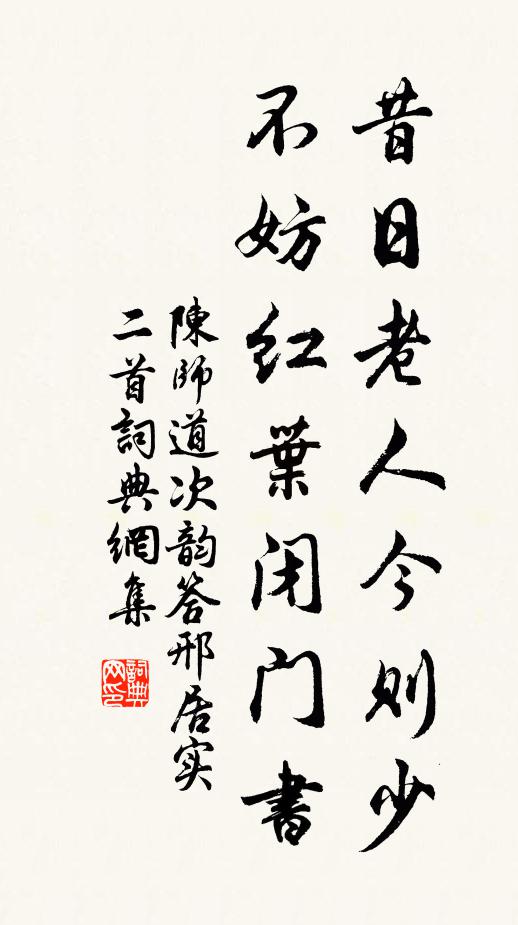 昔日老人今则少
不妨红葉闭门書
陳師道次韵答邢居实
二首詞典網集
詞典网印